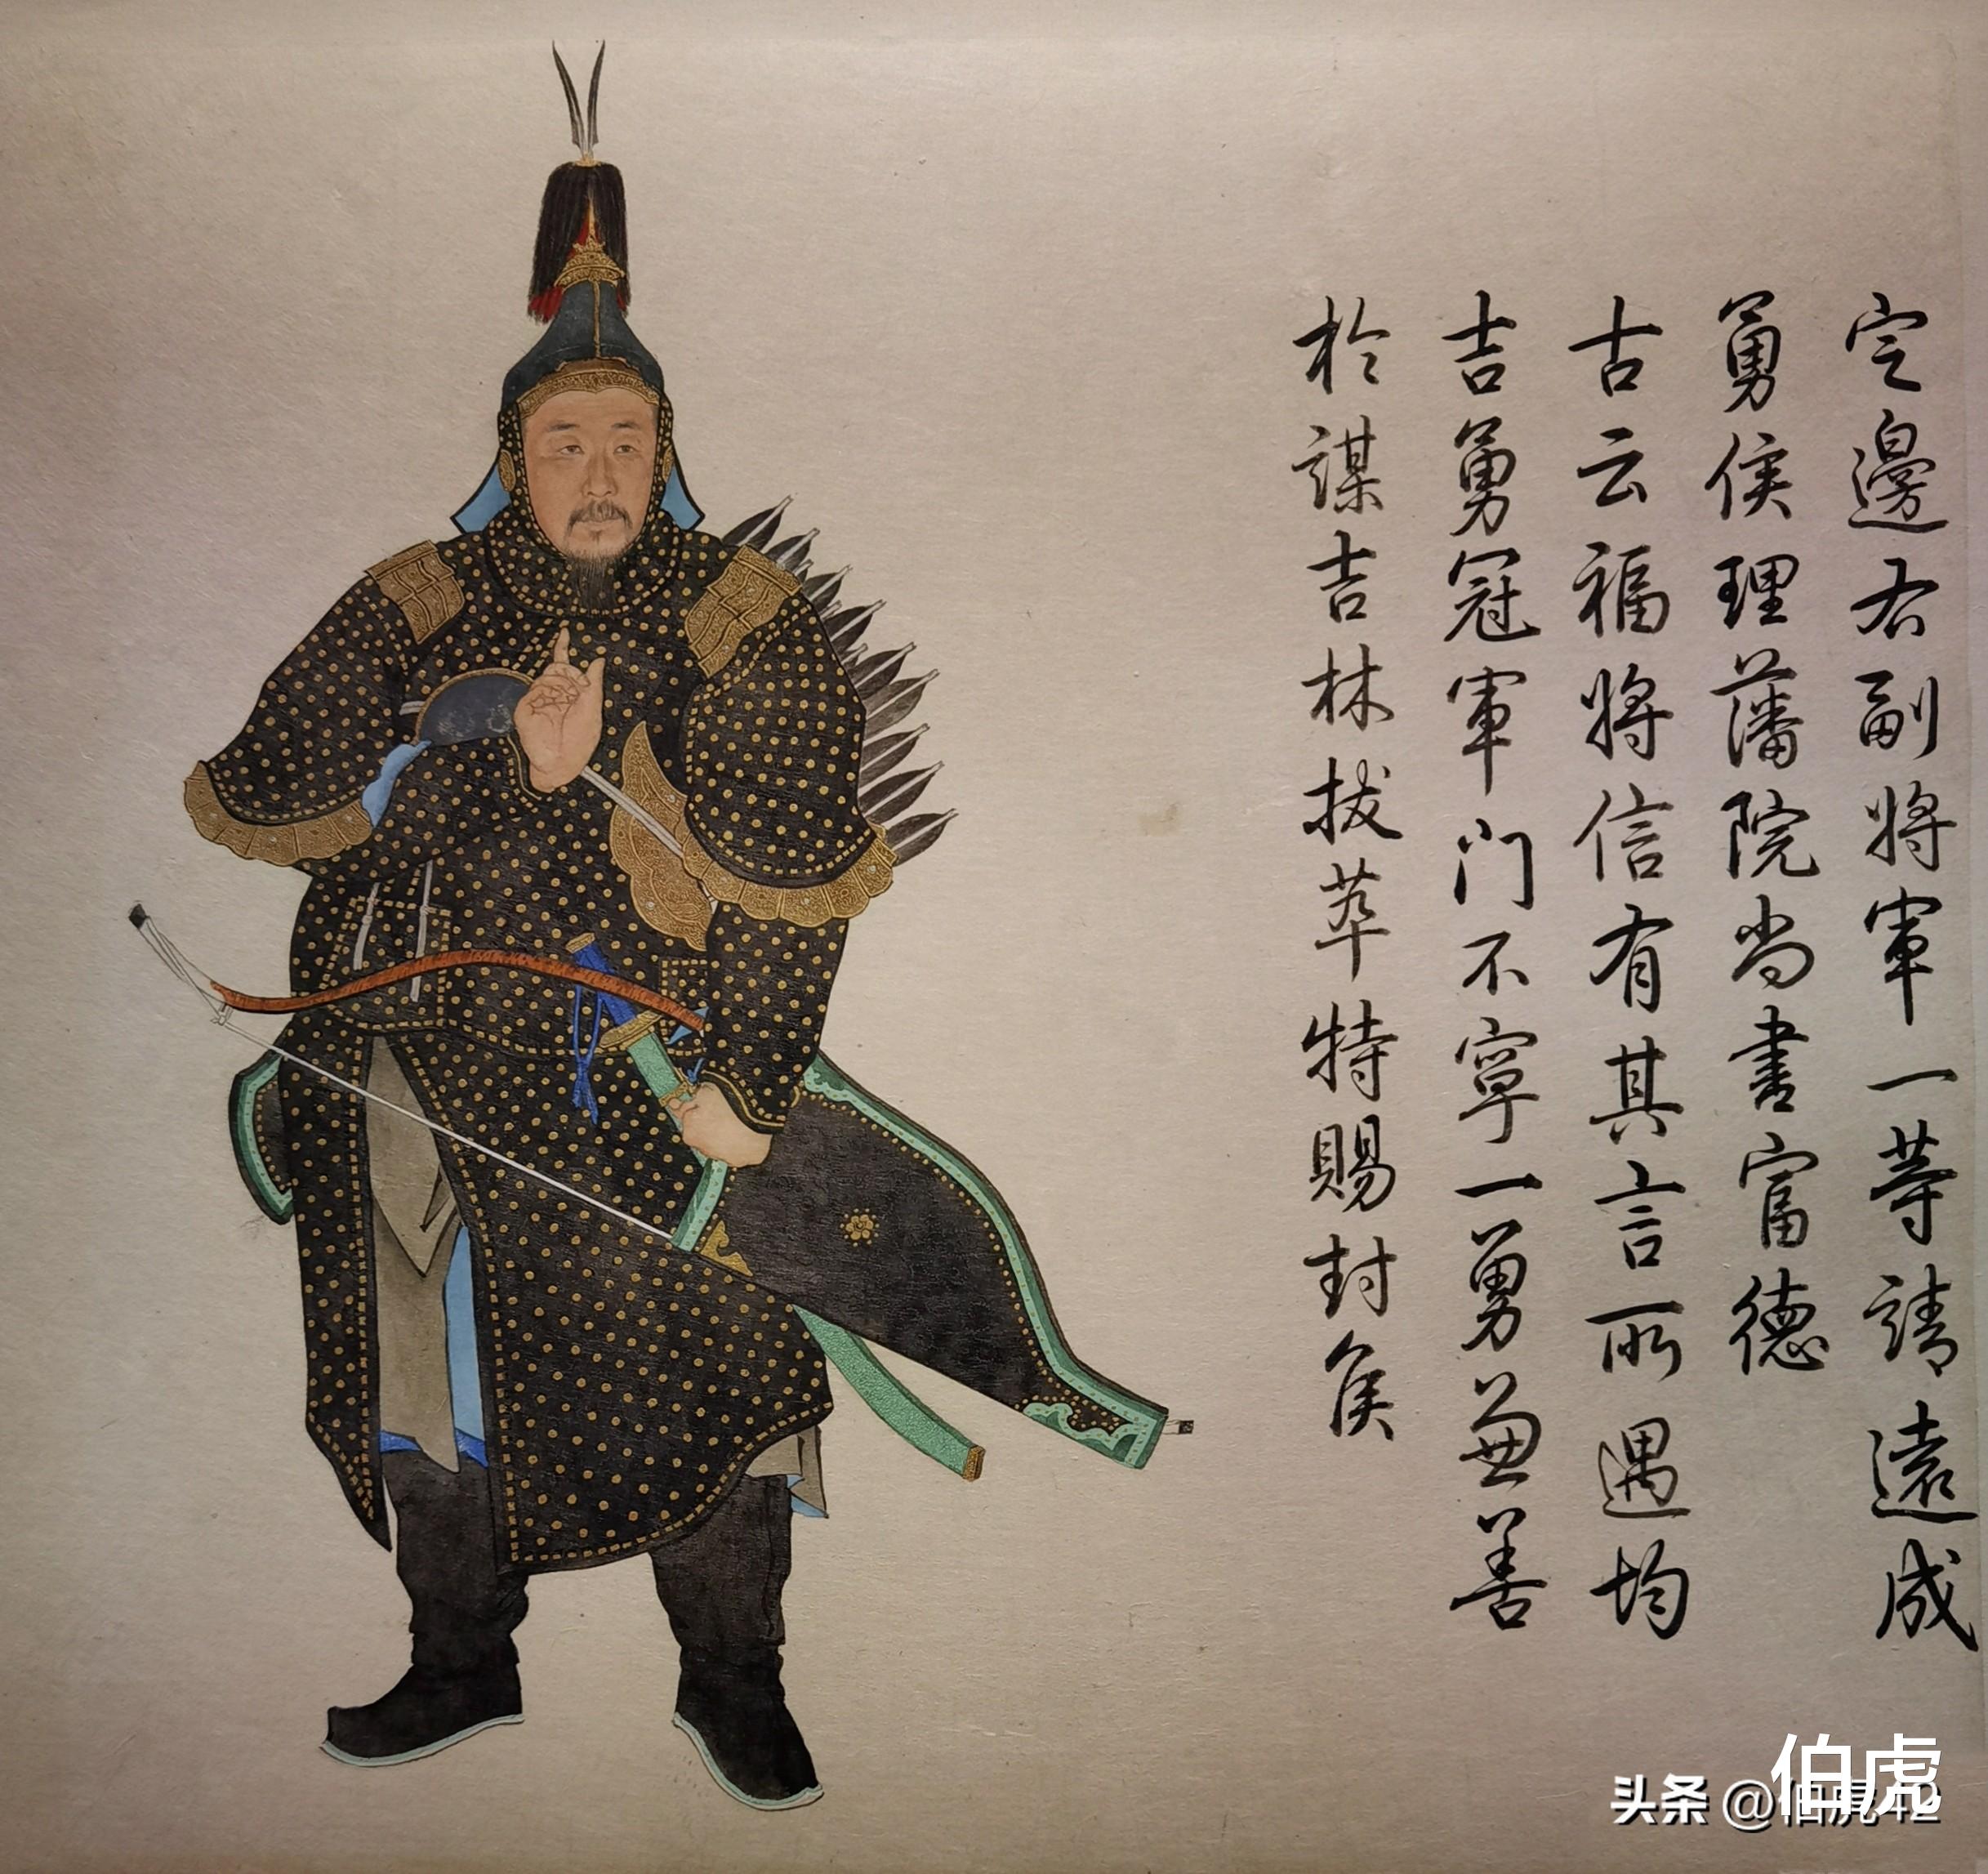 定邊右副將軍一等靖遠成
勇侯理藩院尚書富德
古云福將信有其言所遇均
吉勇冠軍門不寧一勇兼善
於謀吉林拔萃特賜封侯
伯虎
头条 @伯虎42